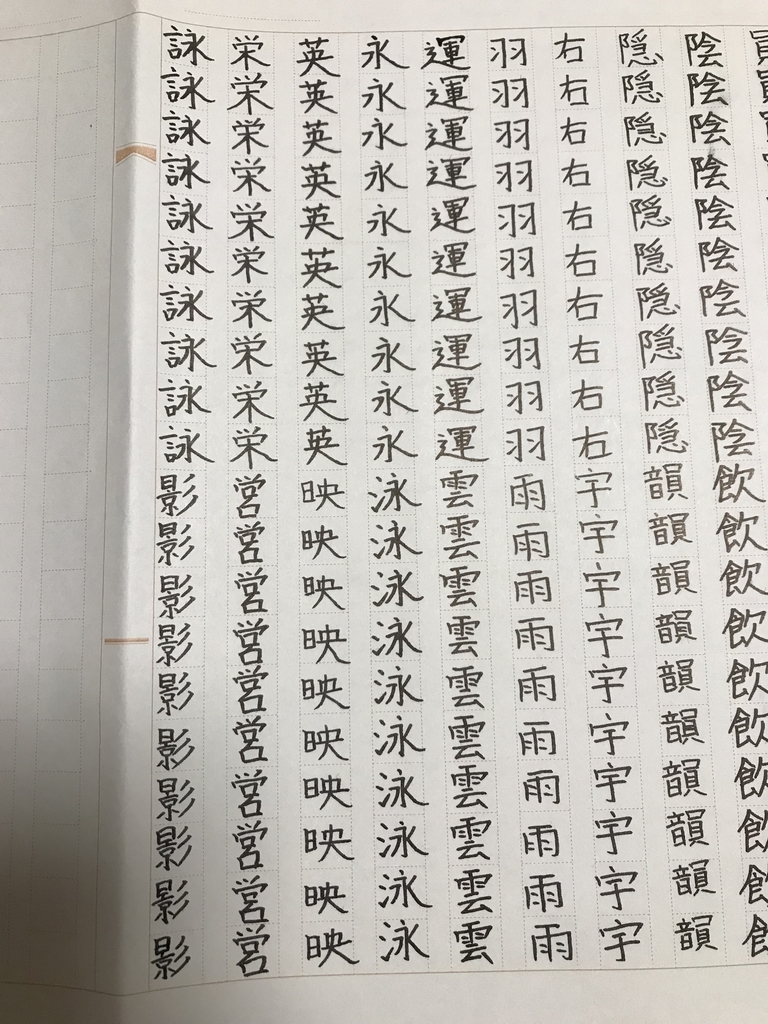 陰陰陰陰陰陰陰陰陰陰飲飲飲飲飲飲飲飲飲飲
隠隠隠隠隠隠隠隠隠隠韻韻韻韻韻韻韻韻韻韻
右右右右右右右右右右宇宇宇宇宇宇宇宇宇宇
羽羽羽羽羽羽羽羽羽羽雨雨雨雨雨雨雨雨雨雨
運運運運運運運運運運雲雲雲雲雲雲雲雲雲雲
永永永永永永永永永永泳泳泳泳泳泳泳泳泳泳
英英英英英英英英英英映映映映映映映映映映
栄栄栄栄栄栄栄栄栄栄営営営営営営営営営営
詠詠詠詠詠詠詠詠詠詠影影影影影影影影影影